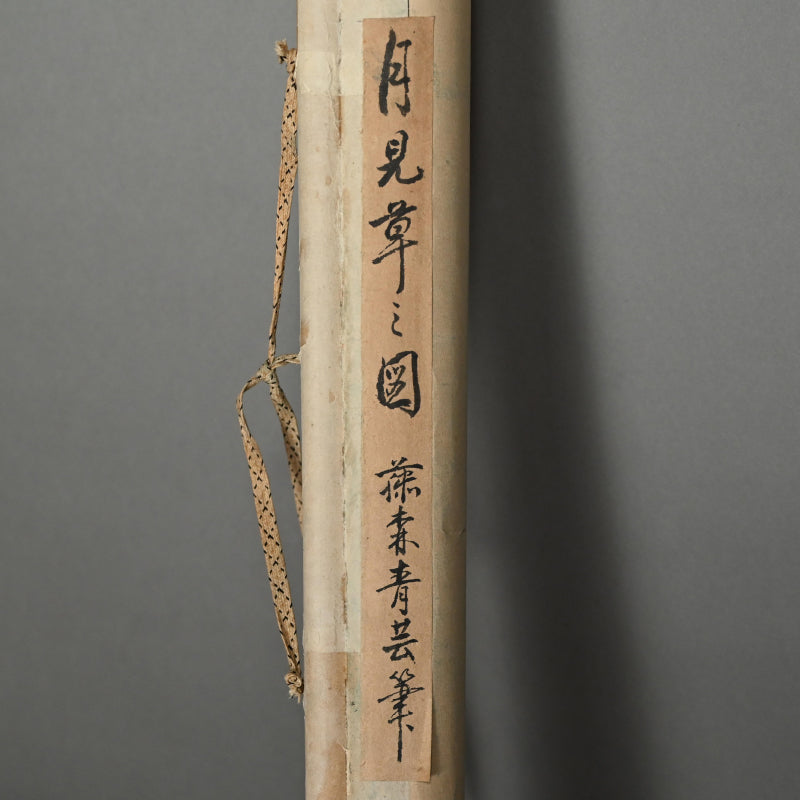 月見草之図 藤森青芸筆